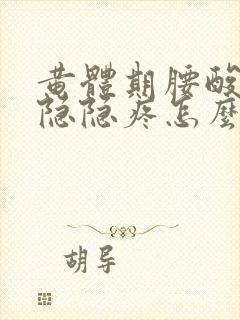 黄體期腰酸
隐隐疼怎麼
胡导